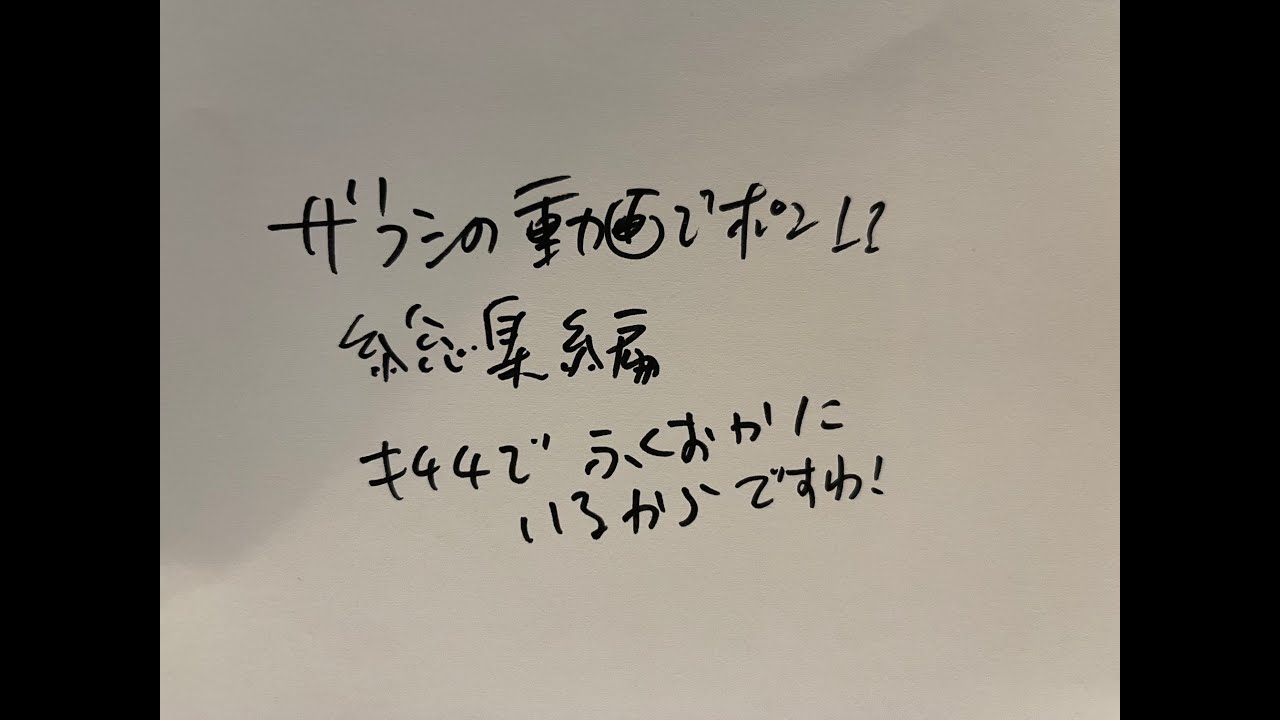 ザラシの動画でポン!?
総集編
キ44で ふくおかに
いるからですわ!